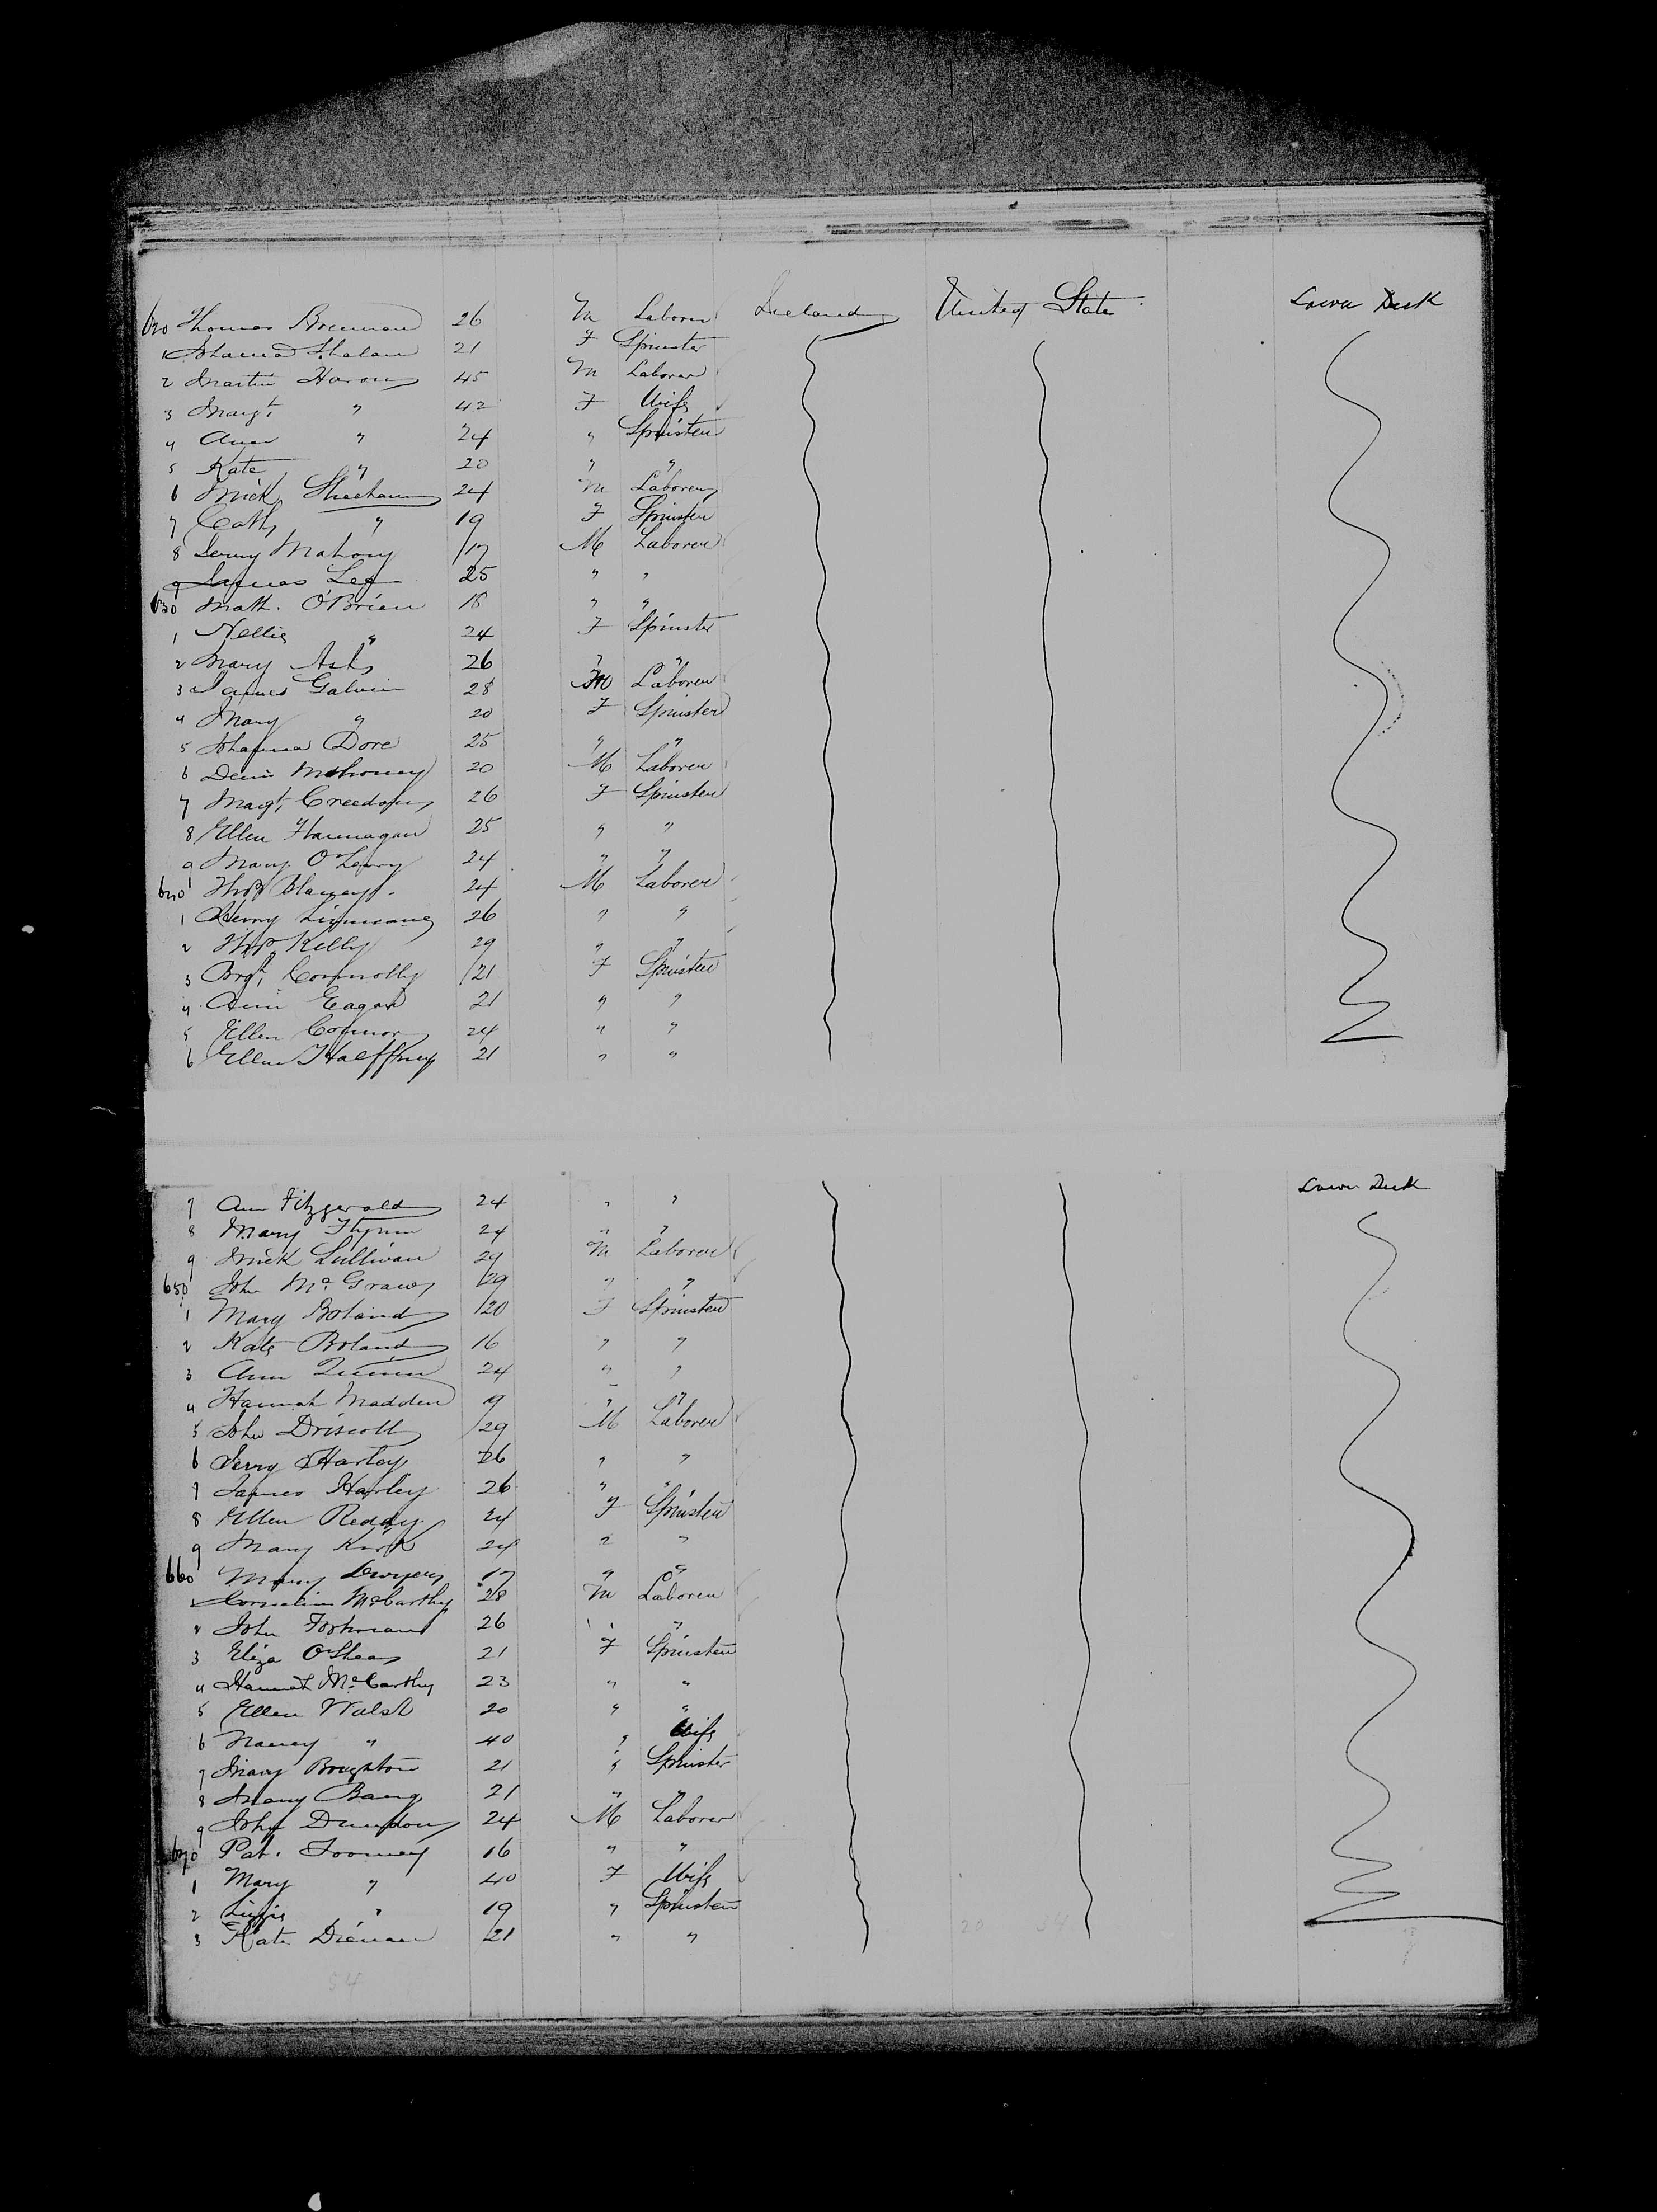 620 Thomas Brennan 26 M Laborer Ireland United State Lower Deck
1 Johanna Phalan 21 F Spinster
2 Martin Harou 45 M Laborer
3 Margt " 42 F Wife
4 Ann " 24 " Spinster
5 Kate " 20 " "
6 Mick Sheehan 24 M Laborer
7 Cath " 19 F Spinster
8 Jerry Mahony 17 M Laborer
9 James Lee 25 " "
630 Math. O'Brien 18 " "
1 Nellie " 24 F Spinster
2 Mary Ash 26 " "
3 James Galvin 28 M Laborer
4 Mary " 20 F Spinster
5 Johanna Dore 25 " "
6 Denis Mahoney 20 M Laborer
7 Margt. Creedon 26 F Spinster
8 Ellen Hannagan 25 " "
9 Mary O'Leary 24 " "
640 Thos Blaney 24 M Laborer
1 26 " "
2 Thos Kelly 29 " "
3 Brgt. Connolly 21 F Spinster
4 Ann Eagan 21 " "
5 Ellen Connor 24 " "
6 Ellen 21 " "
7 Ann Fitzgerald 24 " " Lower Deck
8 Mary Flynn 24 " "
9 Mick Sullivan 29 M Laborer
650 John McGraw 29 " "
1 Mary Boland 20 F Spinster
2 Kate Boland 16 " "
3 Ann Quinn 24 " "
4 Hannah Madden 9 " "
5 John Driscoll 29 M Laborer
6 Jerry Harley 26 " "
7 James Harley 26 " "
8 Ellen Reddy 24 F Spinster
9 Mary Kirk 24 " "
660 Mary Dwyer 17 " "
1 Cornelius McCarthy 28 M Laborer
2 John 26 " "
3 Eliza O'Shea 21 F Spinster
4 Hannah McCarthy 23 " "
5 Ellen Walsh 20 " "
6 Nancy " 40 " Wife
7 Mary Boughton 21 " Spinster
8 Mary Bang 21 " "
9 John Dundon 24 M Laborer
670 Pat. Toomey 16 " "
1 Mary " 40 F Wife
2 Lizzie " 19 " Spinster
3 Kate 21 " "
20 34
54